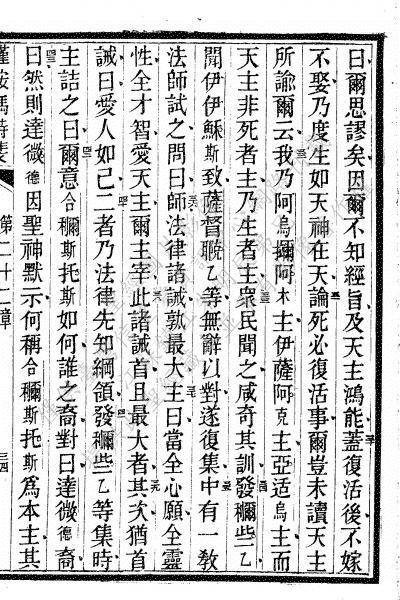 曰爾思謬矣因爾不知經旨及天主鴻能蓋復活後不嫁
不娶乃度生如天神在天論死必復活事爾豈未讀天主
所諭爾云我乃阿烏擁阿木主伊薩阿克主亞适烏主而
天主非死者主乃生者主衆民聞之咸奇其訓發穪些乙
聞伊伊穌斯致薩督聡乙等無辭以對遂復集中有一教
法師試之問曰師法律諸誡孰最大主曰當全心願全靈
性全才智愛天主爾主宰此諸誡首且最大者其次猶首
誡曰愛人如己二者乃法律先知綱領發穪些乙等集時
主詰之曰爾意合穪斯托斯如何誰之裔對曰達微德裔
曰然則達微德因聖神默示何稱合穪斯托斯爲本主其
第二十二章